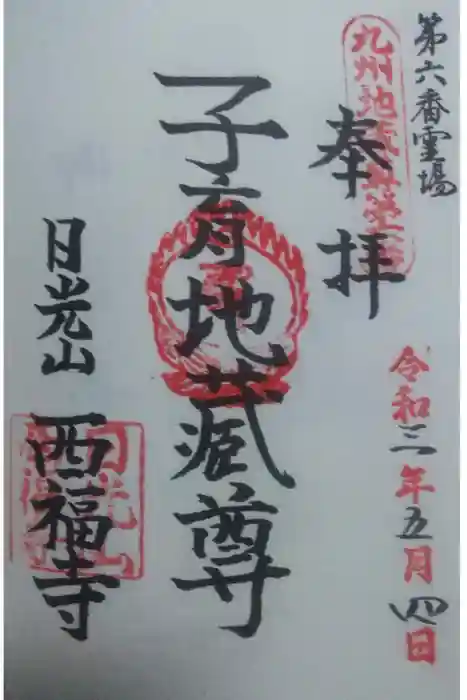 第六番霊場
九州地蔵尊第六番
奉拝
令和三年五月四日
子育地蔵尊
日光山
西福寺